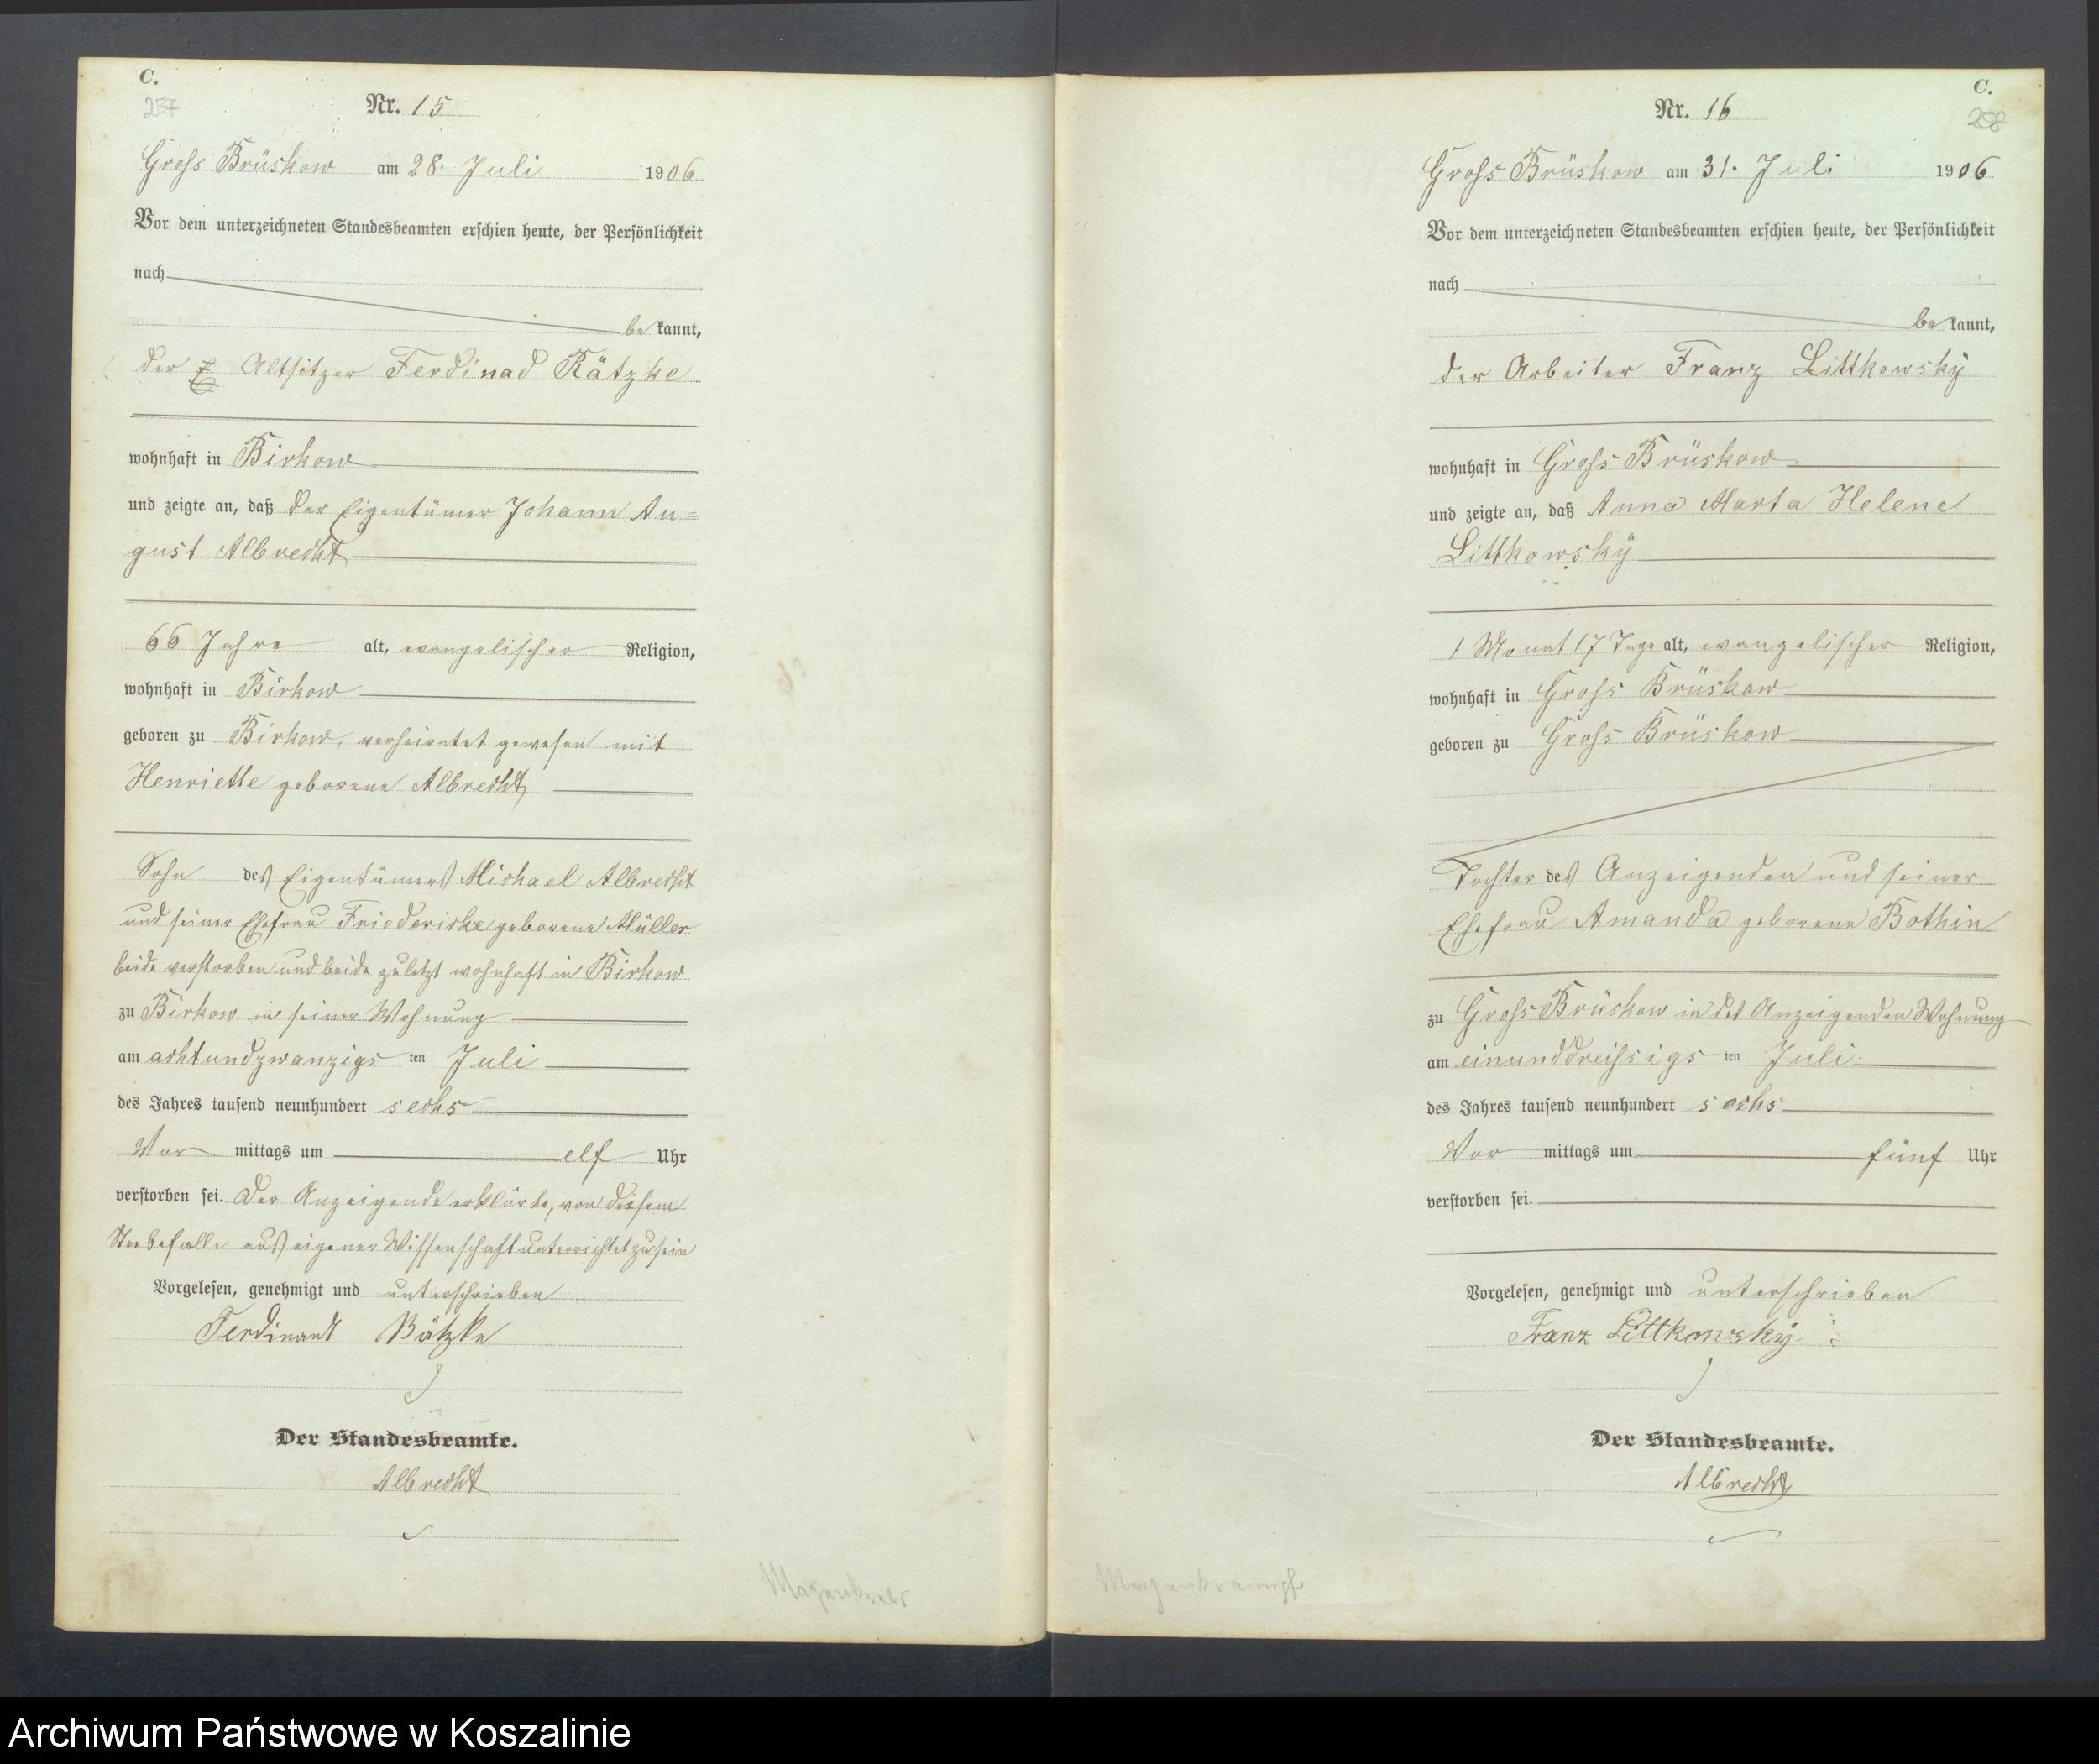 C.
257
Nr. 15
Groß Brüskow am 28. Juli 1906
Vor dem unterzeichneten Standesbeamten erschien heute, der Persönlichkeit
nach
be kannt,
der Altsitzer Ferdinad Rätzke
wohnhaft in Birkow
und zeigte an, daß der Eigentümer Johann Au=
gust Albrecht
66 Jahre alt, evangelischer Religion,
wohnhaft in Birkow
geboren zu Birkow, verheiratet gewesen mit
Henriette geborene Albrecht,
Sohn des Eigentümers Michael Albrecht
und seiner Ehefrau geborene Müller
beide verstorben und beide zuletzt wohnhaft in Birkow
zu Birkow in seiner Wohnung
am achtundzwanzigs ten Juli
des Jahres tausend neunhundert sechs
Vor mittags um elf Uhr
verstorben sei. Der Anzeigende erklärte, von diesem
Sterbefalle aus eigener Wissenschaft unterrichtet zu sein
Vorgelesen, genehmigt und unterschrieben
Ferdinand Rätzke
Der Standesbeamte.
Albrecht
Magenkrebs
C.
258
Nr. 16
Groß Brüskow am 31. Juli 1906
Vor dem unterzeichneten Standesbeamten erschien heute, der Persönlichkeit
nach
be kannt,
der Arbeiter Franz Littkowsky
wohnhaft in Groß Brüskow
und zeigte an, daß Anna Marta Helene
Littkowsky
1 Monat 17 Tage alt, evangelischer Religion,
wohnhaft in Groß Brüskow
geboren zu Groß Brüskow
Tochter des Anzeigenden und seiner
Ehefrau Amanda geborene Bothin
zu Groß Brüskow in des Anzeigenden Wohnung
am einunddreißigs ten Juli
des Jahres tausend neunhundert sechs
Vor mittags um fünf Uhr
verstorben sei.
Vorgelesen, genehmigt und unterschrieben
Franz Littkowsky
Der Standesbeamte.
Albrecht
Magenkrampf
Archiwum Państwowe w Koszalinie